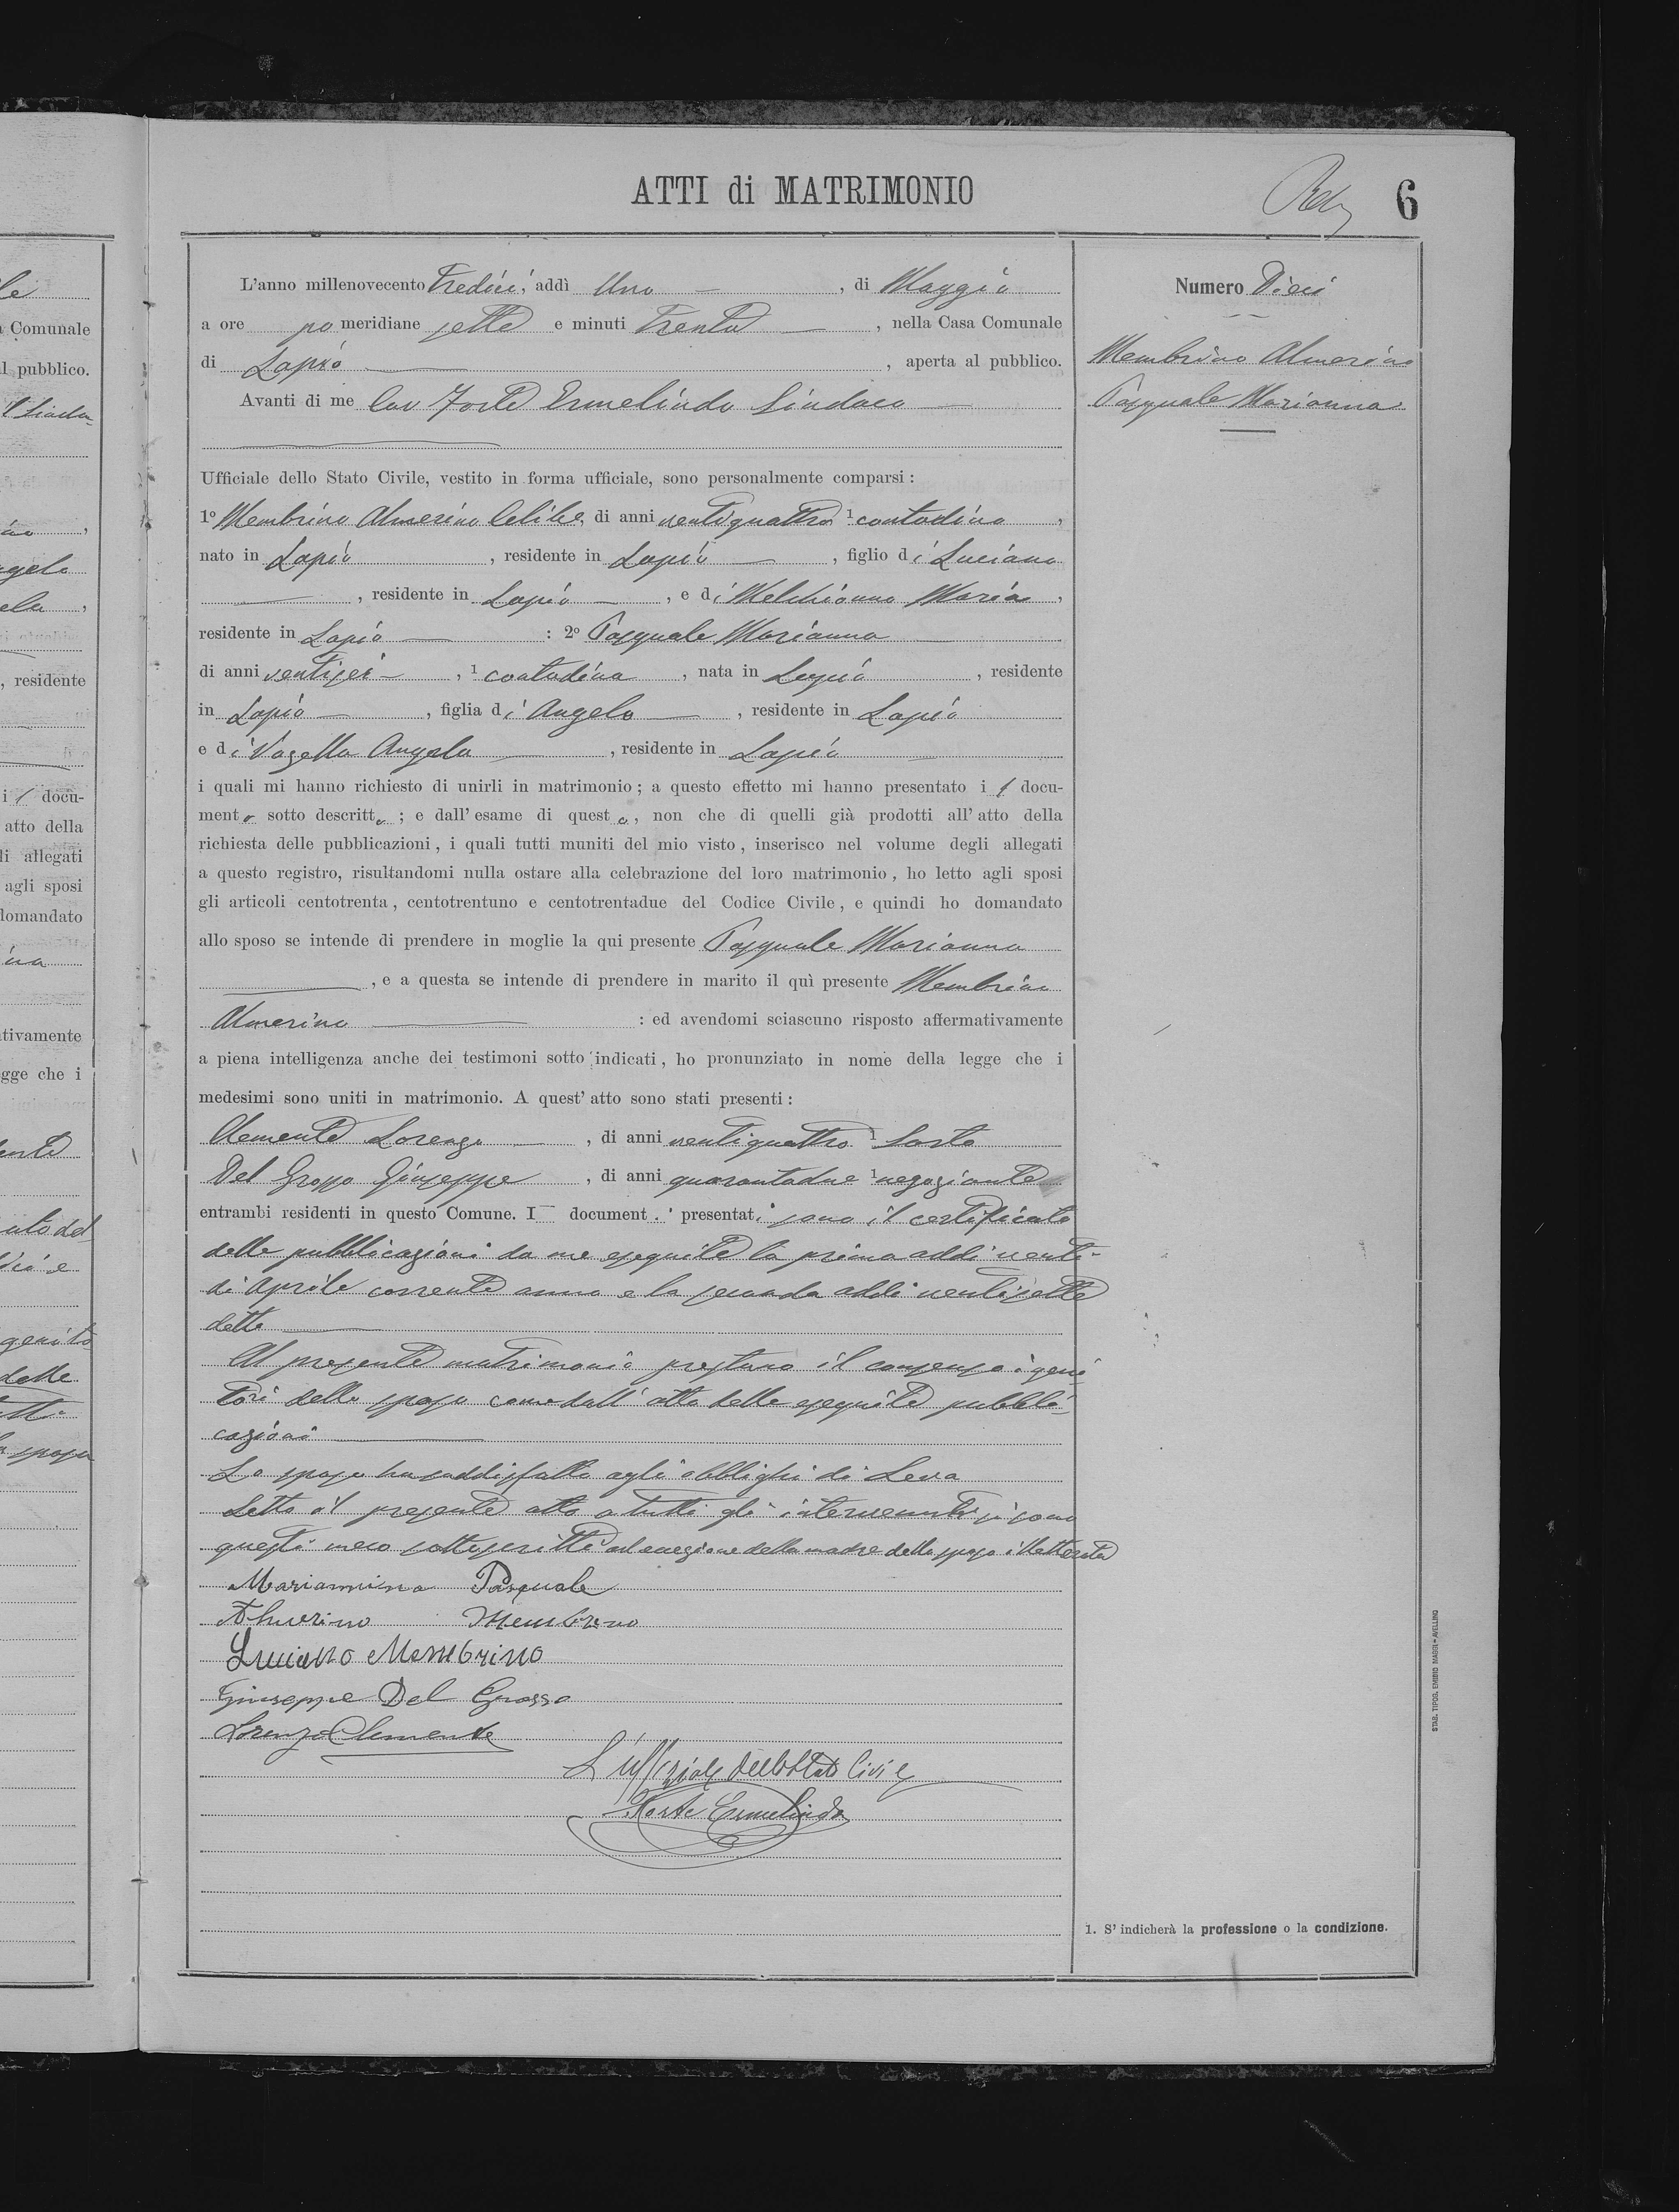 le
a Comunale
al pubblico.
ino ,
ngelo
ela ,
, residente
i 1 docu-
atto della
li allegati
agli sposi
domandato
ina
ativamente
gge che i
ente
ato del
genito
delle
sposa
ATTI di MATRIMONIO
6
L'anno millenovecento Tredici, addì Uno , di Maggio
a ore po meridiane sette e minuti Trenta , nella Casa Comunale
di Lapio , aperta al pubblico.
Avanti di me Cav Forte Ermelindo Sindaco
Ufficiale dello Stato Civile, vestito in forma ufficiale, sono personalmente comparsi :
1º Membrino Almerino Celibe, di anni ventiquattro 1 contadino ,
nato in Lapio , residente in Lapio , figlio di Luciano
, residente in Lapio , e di Melchionno Maria ,
residente in Lapio : 2º Pasquale Marianna
di anni ventisei , 1 contadina , nata in Lapio , residente
in Lapio , figlia di Angelo , residente in Lapio
e di Vozella Angela , residente in Lapio
i quali mi hanno richiesto di unirli in matrimonio ; a questo effetto mi hanno presentato i 1 docu-
mento sotto descritto ; e dall' esame di questo , non che di quelli già prodotti all' atto della
richiesta delle pubblicazioni , i quali tutti muniti del mio visto , inserisco nel volume degli allegati
a questo registro, risultandomi nulla ostare alla celebrazione del loro matrimonio , ho letto agli sposi
gli articoli centotrenta , centotrentuno e centotrentadue del Codice Civile , e quindi ho domandato
allo sposo se intende di prendere in moglie la qui presente Pasquale Marianna
, e a questa se intende di prendere in marito il quì presente Membrino
Almerino : ed avendomi sciascuno risposto affermativamente
a piena intelligenza anche dei testimoni sotto indicati , ho pronunziato in nome della legge che i
medesimi sono uniti in matrimonio. A quest' atto sono stati presenti :
Clemente Lorenzo , di anni ventiquattro 1 Sarto
Del Grosso Giuseppe , di anni quarantadue 1 negoziante
entrambi residenti in questo Comune. I document . presentati sono il certificato
delle pubblicazioni da me eseguite la prima addi venti
di Aprile corrente anno e la seconda addi ventisette
detto
Al presente matrimonio prestano il consenso i geni
tori dello sposo come dall' atto delle eseguite pubbli-
cazioni
Lo sposo ha soddisfatto agli obblighi di Leva
Letto il presente atto a tutti gli intervenuti si sono
questi meco sottoscritti ad eccezione della madre dello sposo illetterata
Mariannina Pasquale
Almerino Membrino
Luciano Membrino
Giuseppe Del Grosso
Lorenzo Clemente
L'uffiziale dello Stato Civile
Forte Ermelindo
Numero Dieci
Membrino Almerino
Pasquale Marianna
1. S' indicherà la professione o la condizione.
STAB. TIPOG. EMIDIO MAGGI - AVELLINO